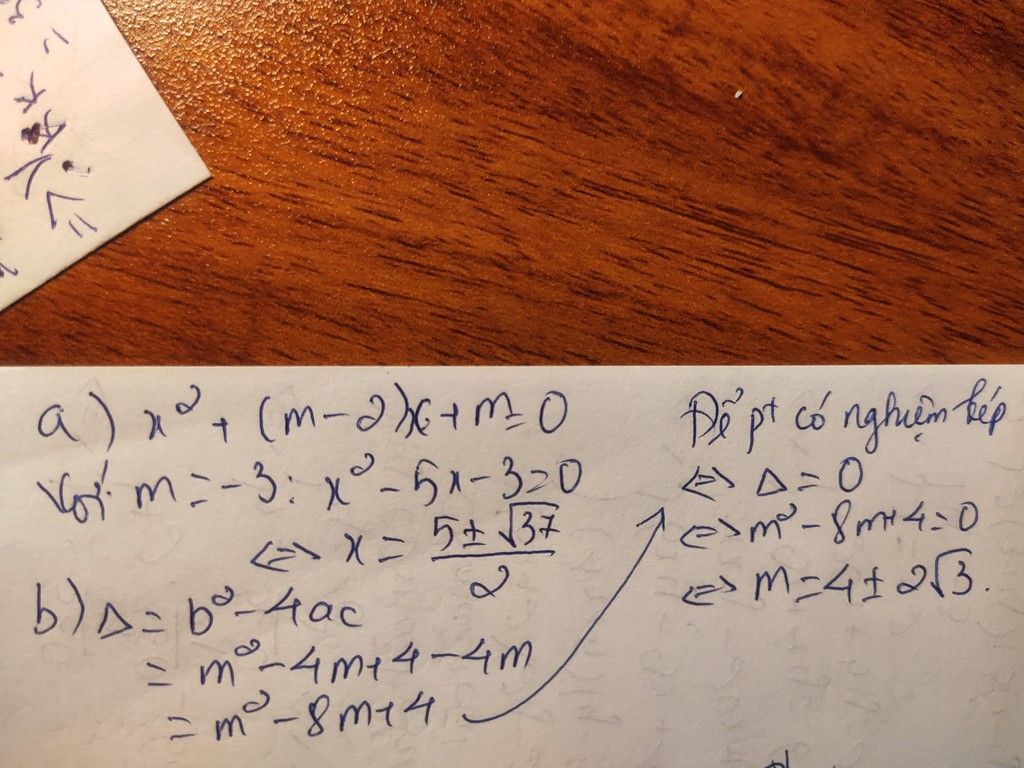 a) x² + (m-2)x + m = 0
Với m = -3: x² - 5x - 3 = 0
⇔ x = (5 ± √37)/2
b) Δ = b² - 4ac
= m² - 4m + 4 - 4m
= m² - 8m + 4
Để pt có nghiệm kép
⇔ Δ = 0
⇔ m² - 8m + 4 = 0
⇔ m = 4 ± 2√3.